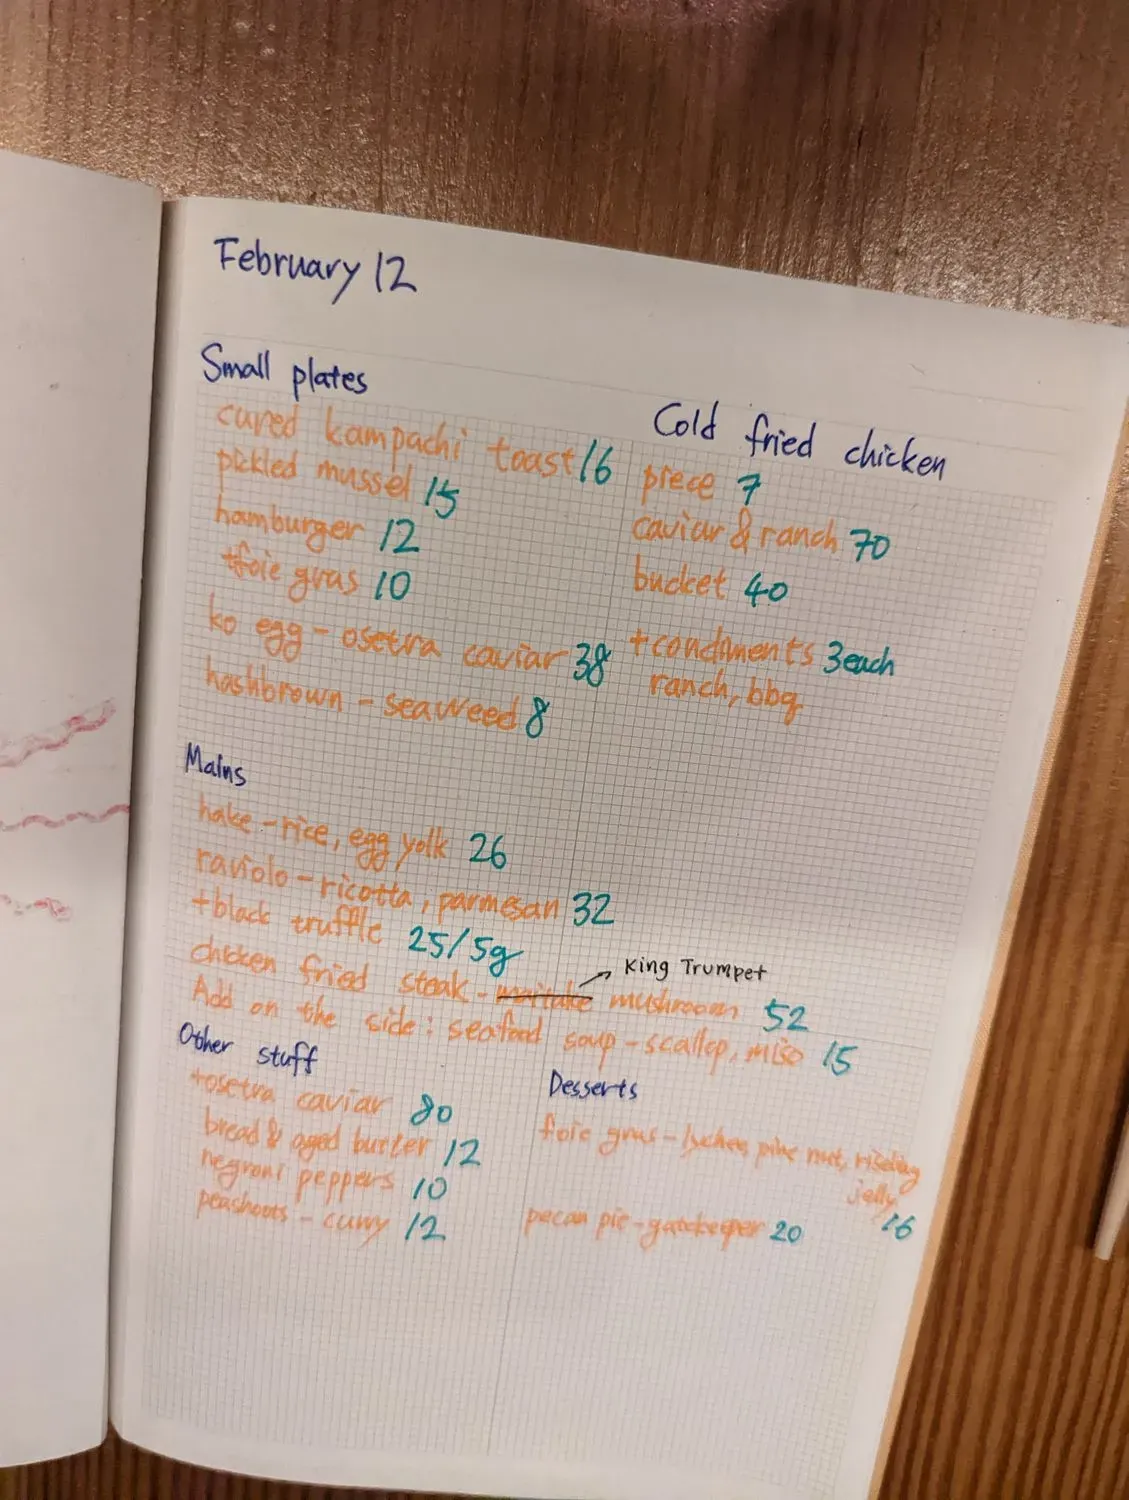 February 12
Small plates
cured kampachi toast 16
pickled mussel 15
hamburger 12
+foie gras 10
ko egg - osetra caviar 38
hashbrown - seaweed 8
Cold fried chicken
piece 7
caviar & ranch 70
bucket 40
+ condiments 3 each
ranch, bbq
Mains
hake - rice, egg yolk 26
raviolo - ricotta, parmesan 32
+black truffle 25/5g
King Trumpet
chicken fried steak - maitake mushroom 52
Add on the side: seafood soup - scallop, miso 15
Other stuff
+osetra caviar 80
bread & aged butter 12
negroni peppers 10
peashoots - curry 12
Desserts
foie gras - lychee, pine nut, riesling
jelly
16
pecan pie - gatekeeper 20